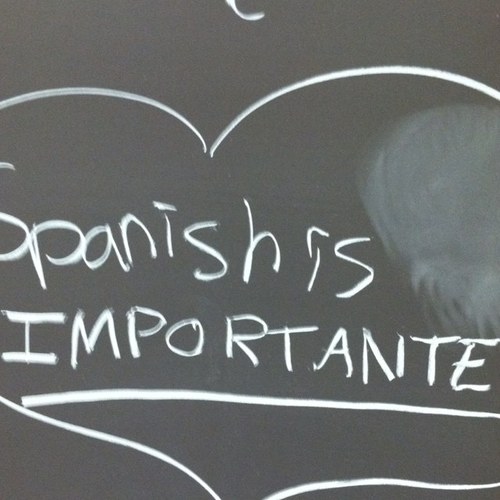 Spanish is
IMPORTANTE